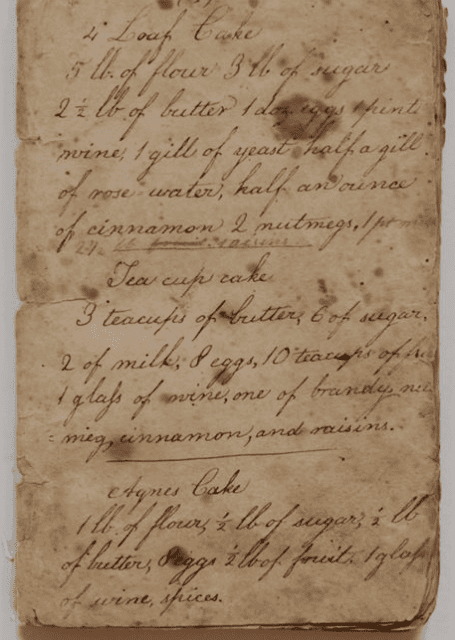 4 Loaf Cake
5 lb. of flour 3 lb of sugar
2 ½ lb of butter 1 doz eggs 1 pint
wine, 1 gill of yeast half a gill
of rose water, half an ounce
of cinnamon 2 nutmegs, 1 pt
2½ lb fruit raisins
Tea cup cake
3 teacups of butter, 6 of sugar,
2 of milk, 8 eggs, 10 teacups of
1 glass of wine, one of brandy nu
= meg, cinnamon, and raisins.
Agnes Cake
1 lb of flour, ½ lb of sugar, ½ lb
of butter, 8 eggs ½ lb of fruit. 1 glass
of wine, spices.